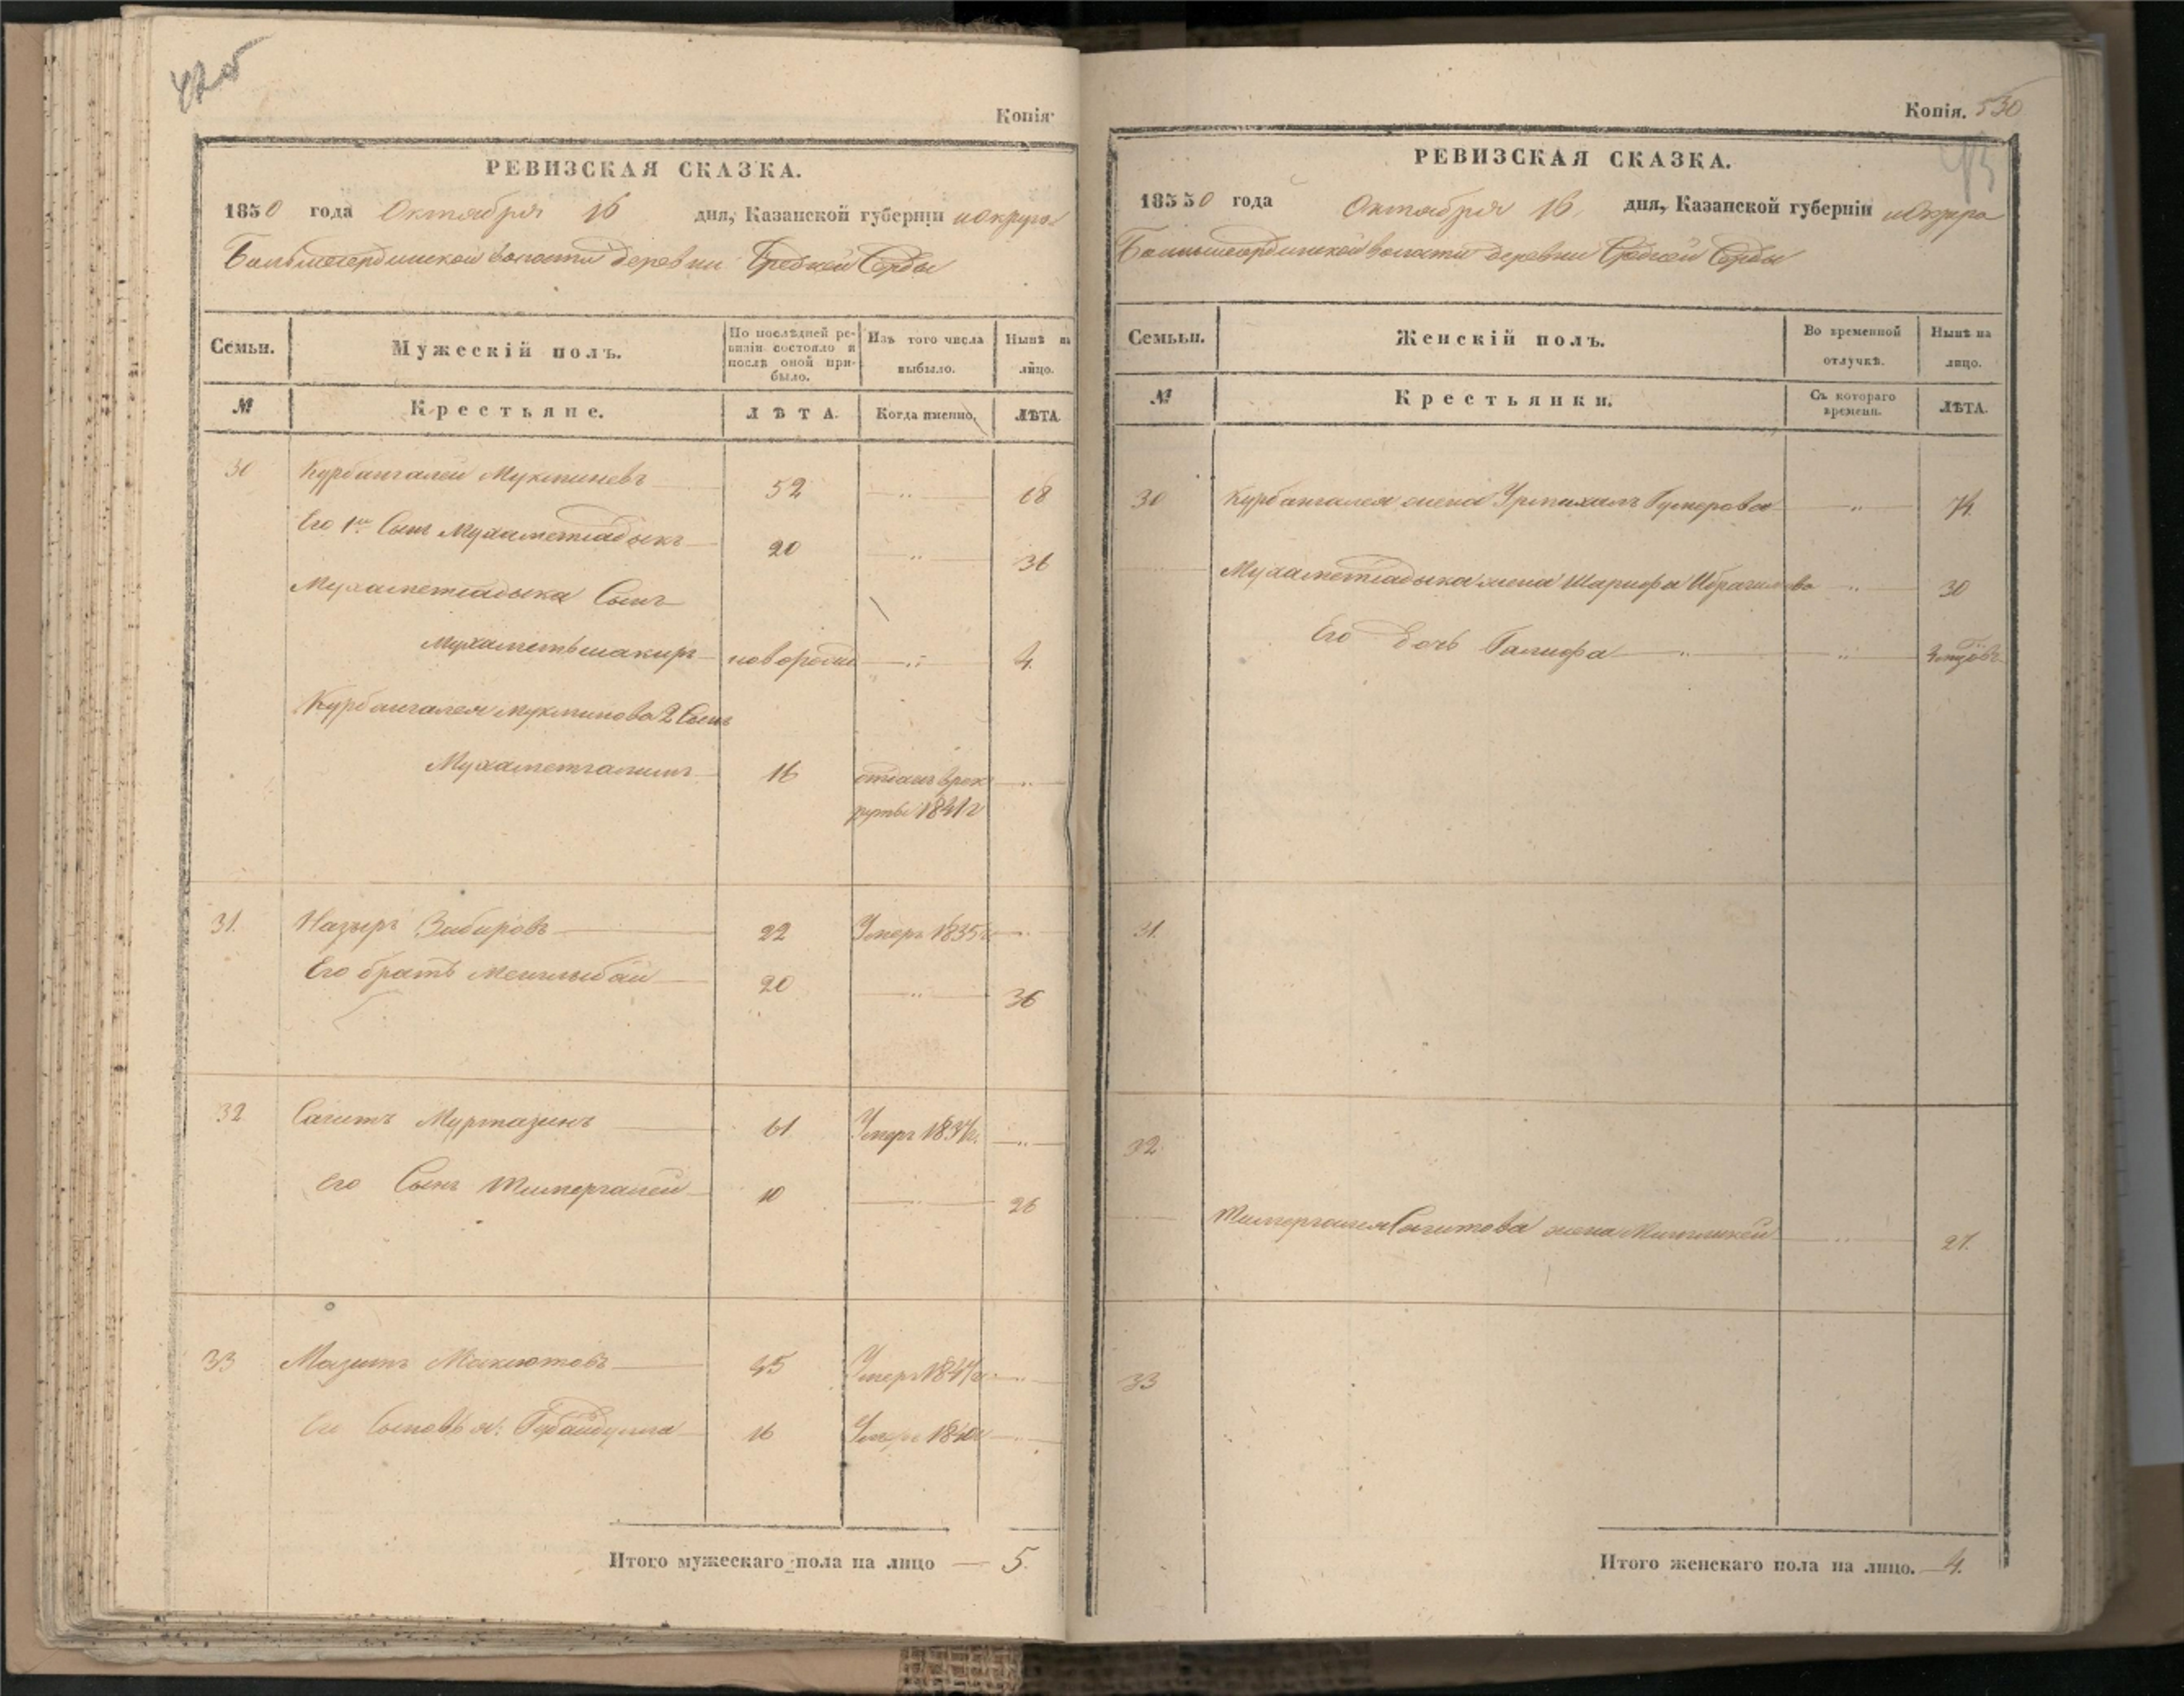 Копія
РЕВИЗСКАЯ СКАЗКА.
1850 года Октября 16 дня, Казанской губерніи и округа
волости деревни Средней Серды
Семьи. Мужескій полъ. По послѣдней ревизіи состояло и послѣ оной прибыло. Изъ того числа выбыло. Нынѣ на лицо.
№ Крестьяне. ЛѢТА. Когда именно, ЛѢТА.
30 Курбангалей Мукминевъ 52 68
Его 1й Сынъ Мухаметсадыкъ 20 36
Мухаметсадыка Сынъ
Мухаметьшакиръ новорожд 4.
Курбангалея Мукминова 2 Сынъ
Мухаметгалимъ 16 отданъ врек
руты 1841 г
31. Назыръ Забировъ 22 Умеръ 1835 г.
Его братъ Менглыбай 20 36
32 Сагитъ Муртазинъ 61 Умеръ 1834 г.
его Сынъ Тимергалей 10 26
33 Мазитъ Маклютовъ 45 Умеръ 1847 г.
Его Сыновья: Губайдулла 16 Умеръ 1840 г
Итого мужескаго пола на лицо — 5.
Копія. 530
РЕВИЗСКАЯ СКАЗКА.
18550 года Октября 16, дня, Казанской губерніи и Округа
волости деревни Средней Серды
Семьи. Женскій полъ. Во временной отлучкѣ. Нынѣ на лицо.
№ Крестьянки. Съ котораго времени. ЛѢТА.
30 Курбангалея жена Гумерова 74.
Мухаметсадыка жена Шарифа Ибрагимова 30
Его дочь Галифа
31.
32.
Тимергалея Сагитова жена 27.
33
Итого женскаго пола на лицо. — 4.